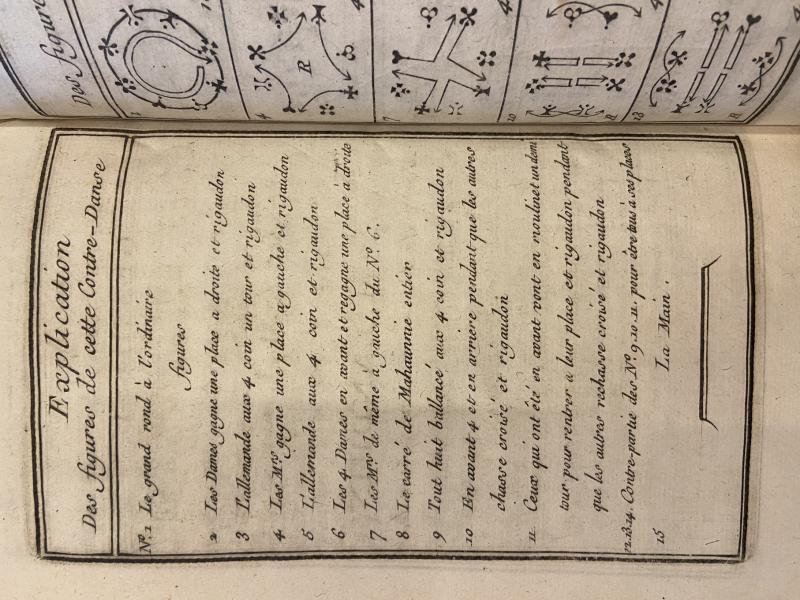 Des figure
Explication
Des figures de cette Contre-Danse
Nº. 1 Le grand rond à l'ordinaire
figures
2 Les Dames gagne une place a droite et rigaudon
3 L'allemande aux 4 coin un tour et rigaudon
4 Les Mrs gagne une place a gauche et rigaudon
5 L'allemande aux 4 coin et rigaudon
6 Les 4 Dames en avant et regagne une place à droite
7 Les Mrs de même à gauche du Nº 6.
8 Le carré de Mahaunnie entier
9 Tout huit ballancé aux 4 coin et rigaudon
10 En avant 4 et en arriere pendant que les autres
chasse croisé et rigaudon
11 Ceux qui ont été en avant vont en moulinet un demi
tour pour rentrer a leur place et rigaudon pendant
que les autres rechasse croisé et rigaudon
12.13.14. Contre-partie des Nº. 9. 10. 11. pour être tous à ses places
15 La Main.
1
4
R
7
10
13